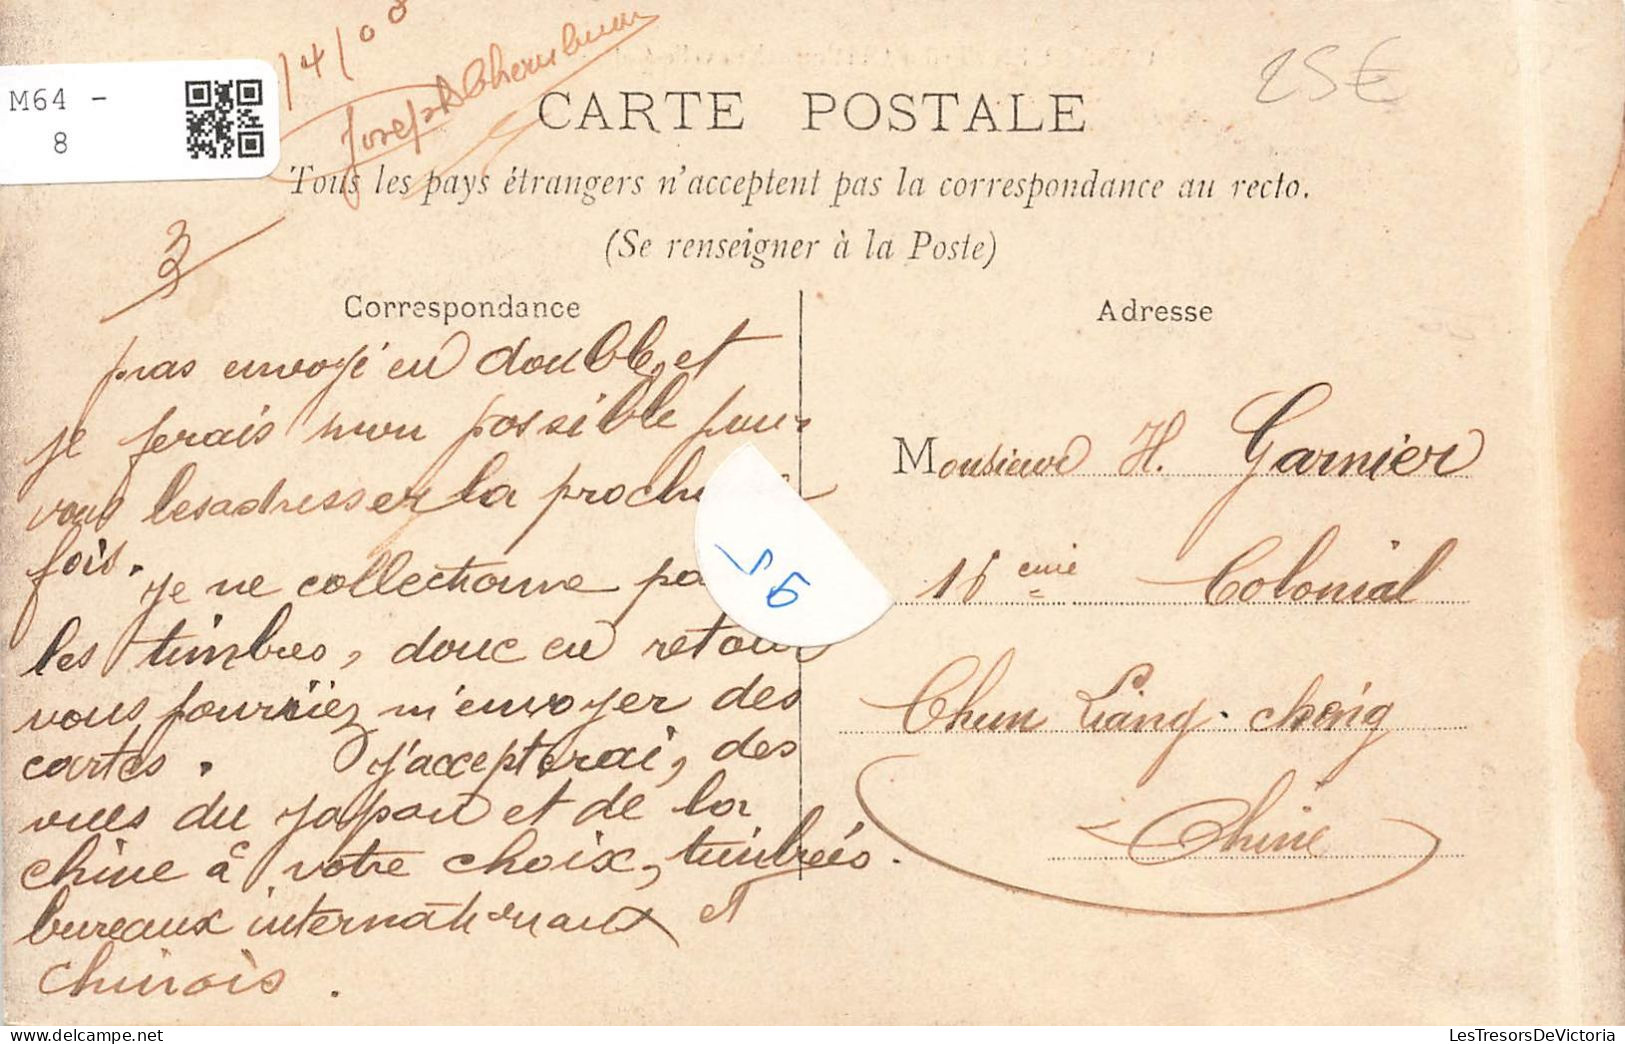 /4/08
Joseph Cherubin
M64 -
8
25€
CARTE POSTALE
Tous les pays étrangers n'acceptent pas la correspondance au recto.
(Se renseigner à la Poste)
3
Correspondance
pas envoyé en double, et
je ferais mon possible pour
vous les adresser la prochaine
fois.
Je ne collectionne pas
les timbres, donc en retour
vous pourriez m'envoyer des
cartes. J'accepterai, des
vues du Japon et de la
chine à votre choix, timbrées.
bureaux internationaux et
chinois.
56
Adresse
Monsieur H. Garnier
16 eme Colonial
Chun Liang. cheng
Chine
LesTresorsDeVictoria
www.delcampe.net